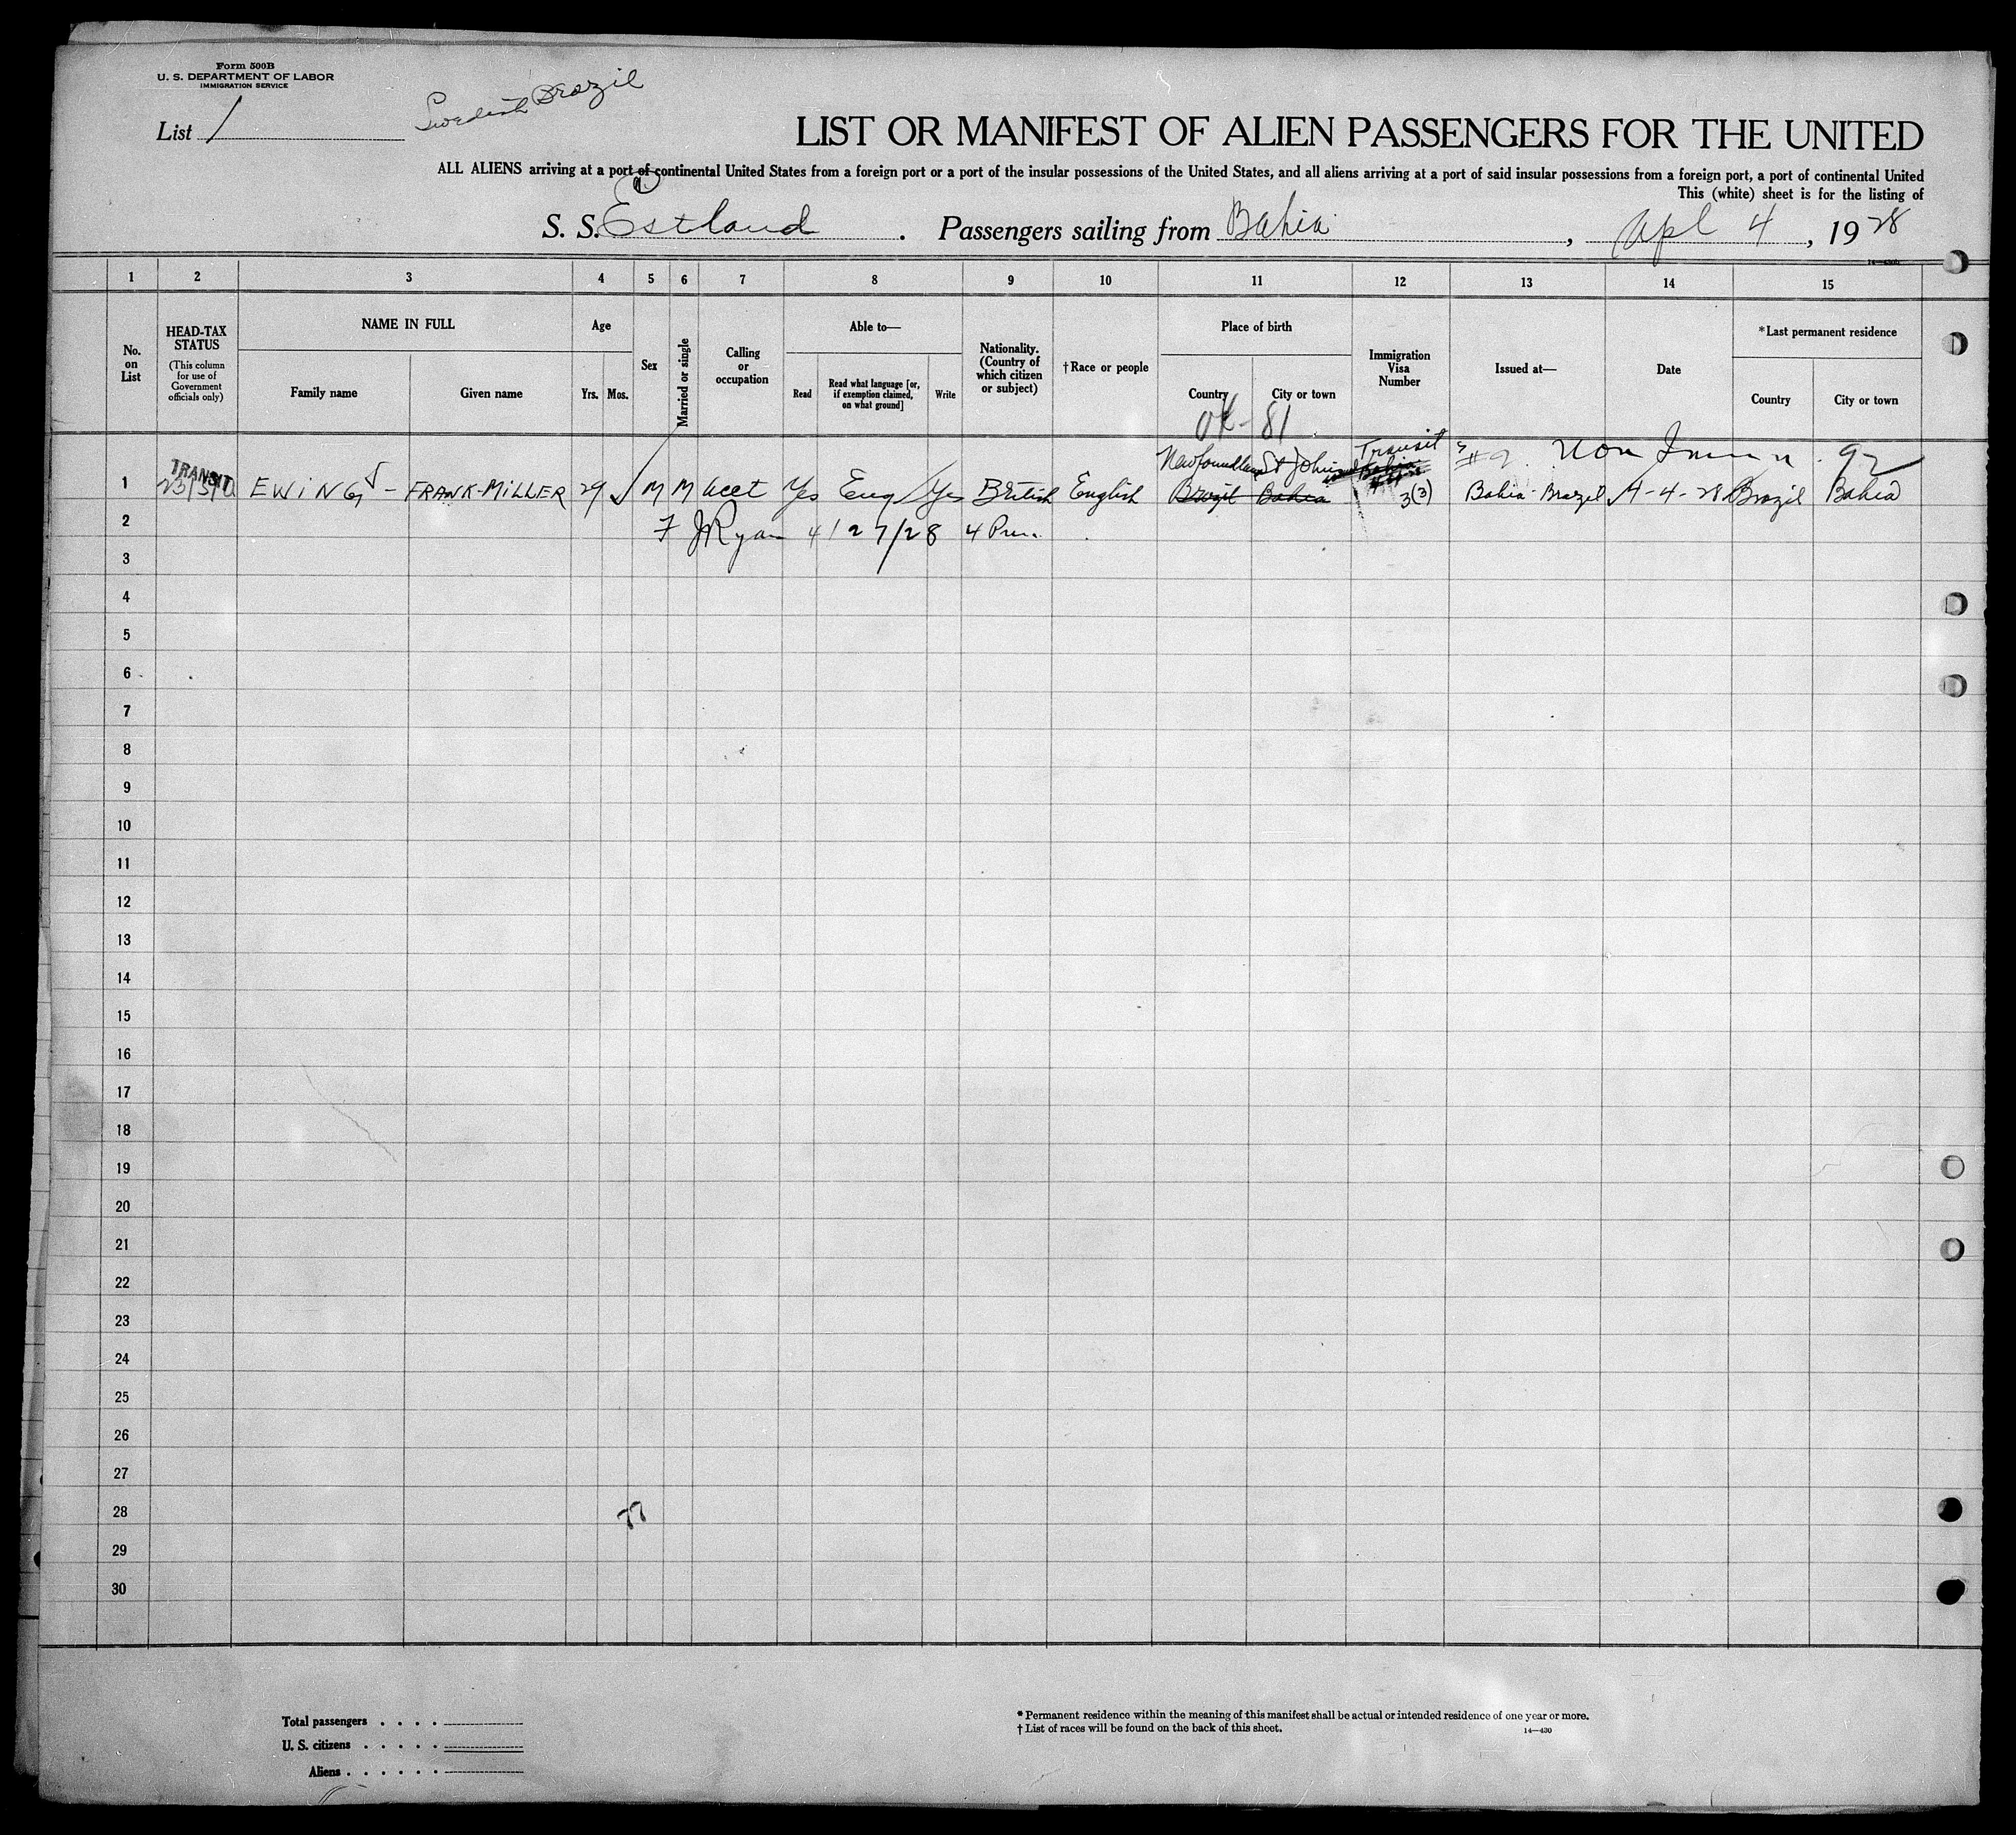 Form 500B
U. S. DEPARTMENT OF LABOR
IMMIGRATION SERVICE
List 1
Swedish Brazil
LIST OR MANIFEST OF ALIEN PASSENGERS FOR THE UNITED
ALL ALIENS arriving at a port of continental United States from a foreign port or a port of the insular possessions of the United States, and all aliens arriving at a port of said insular possessions from a foreign port, a port of continental United
This (white) sheet is for the listing of
S. S. Estland . Passengers sailing from Bahia , Apl 4 , 1928
1 2 3 4 5 6 7 8 9 10 11 12 13 14 15
No. on List
HEAD-TAX STATUS
(This column for use of Government officials only)
NAME IN FULL
Family name
Given name
Age
Yrs. Mos.
Sex
Married or single
Calling or occupation
Able to—
Read
Read what language [or, if exemption claimed, on what ground]
Write
Nationality. (Country of which citizen or subject)
†Race or people
Place of birth
Country
City or town
OK - 81
Immigration Visa Number
Issued at—
Date
*Last permanent residence
Country
City or town
Newfoundland St Johns Transit
TRANSIT
1 EWING - FRANK-MILLER 29 M M acct Yes Eng Yes British English Brazil Bahia 3(3) Bahia - Brazil 4-4-28 Brazil Bahia
2 F J Ryan 4/27/28
3
4
5
6
7
8
9
10
11
12
13
14
15
16
17
18
19
20
21
22
23
24
25
26
27
28 77
29
30
Total passengers . . . .
U. S. citizens . . . . .
Aliens . . . . . .
* Permanent residence within the meaning of this manifest shall be actual or intended residence of one year or more.
† List of races will be found on the back of this sheet.
14—430